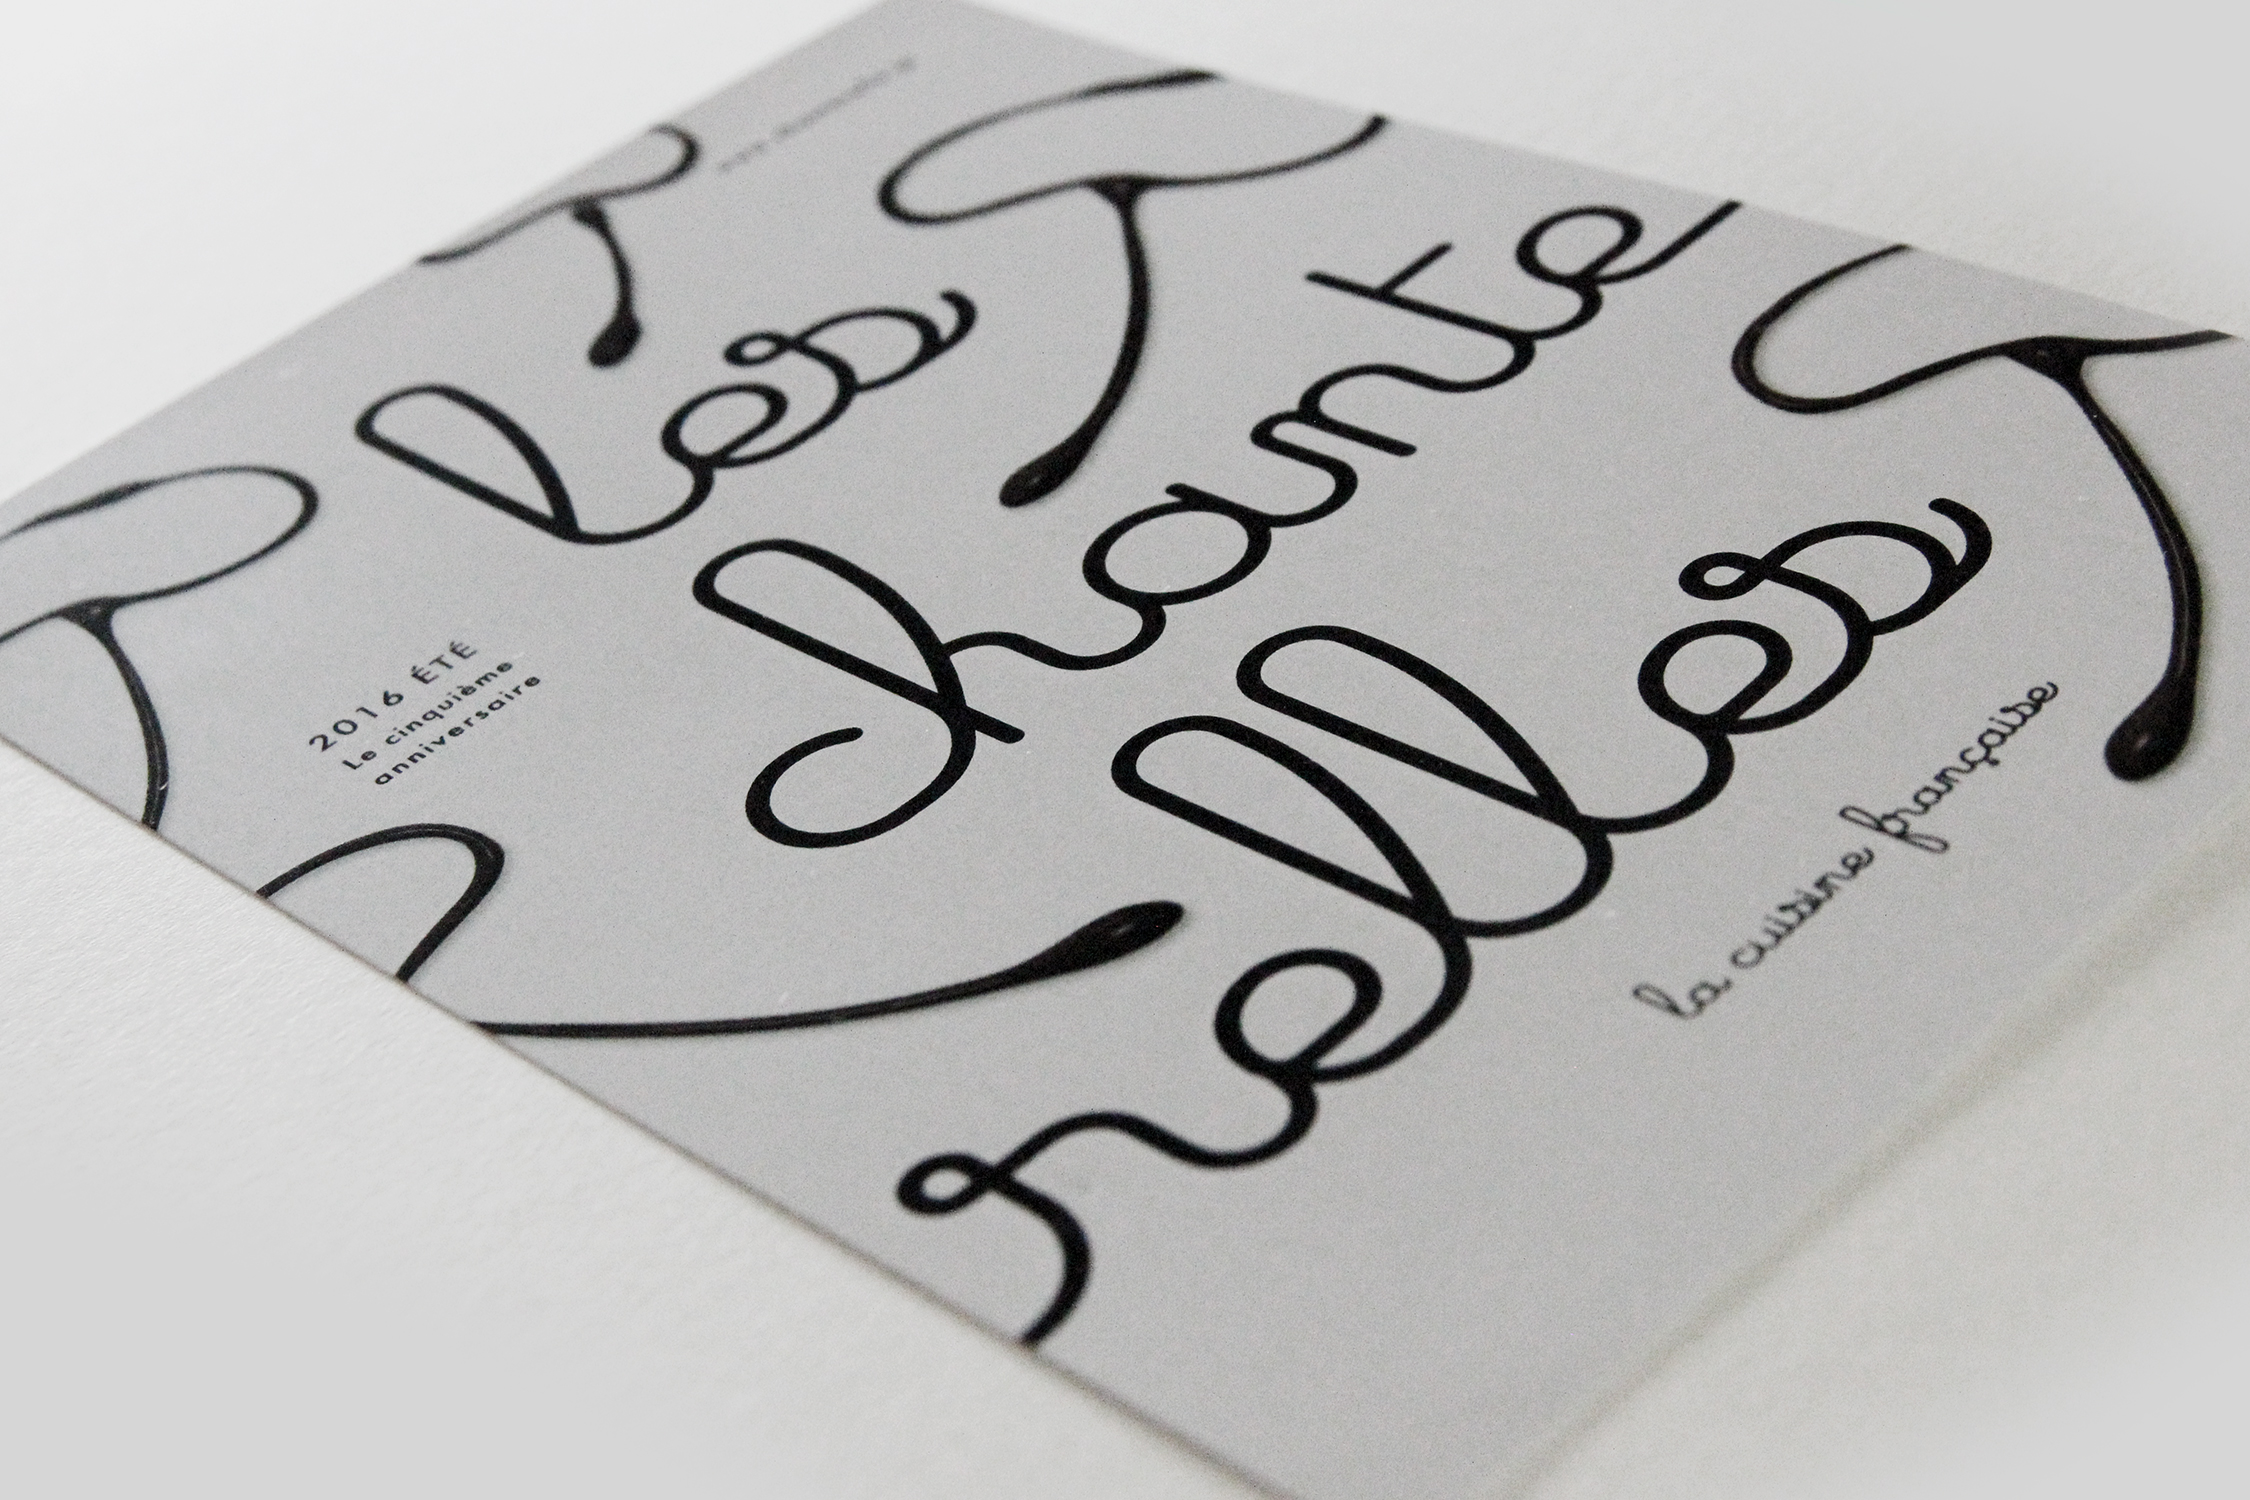 les
chante
relles
2016 ÉTÉ
Le cinquième
anniversaire
la cuisine française